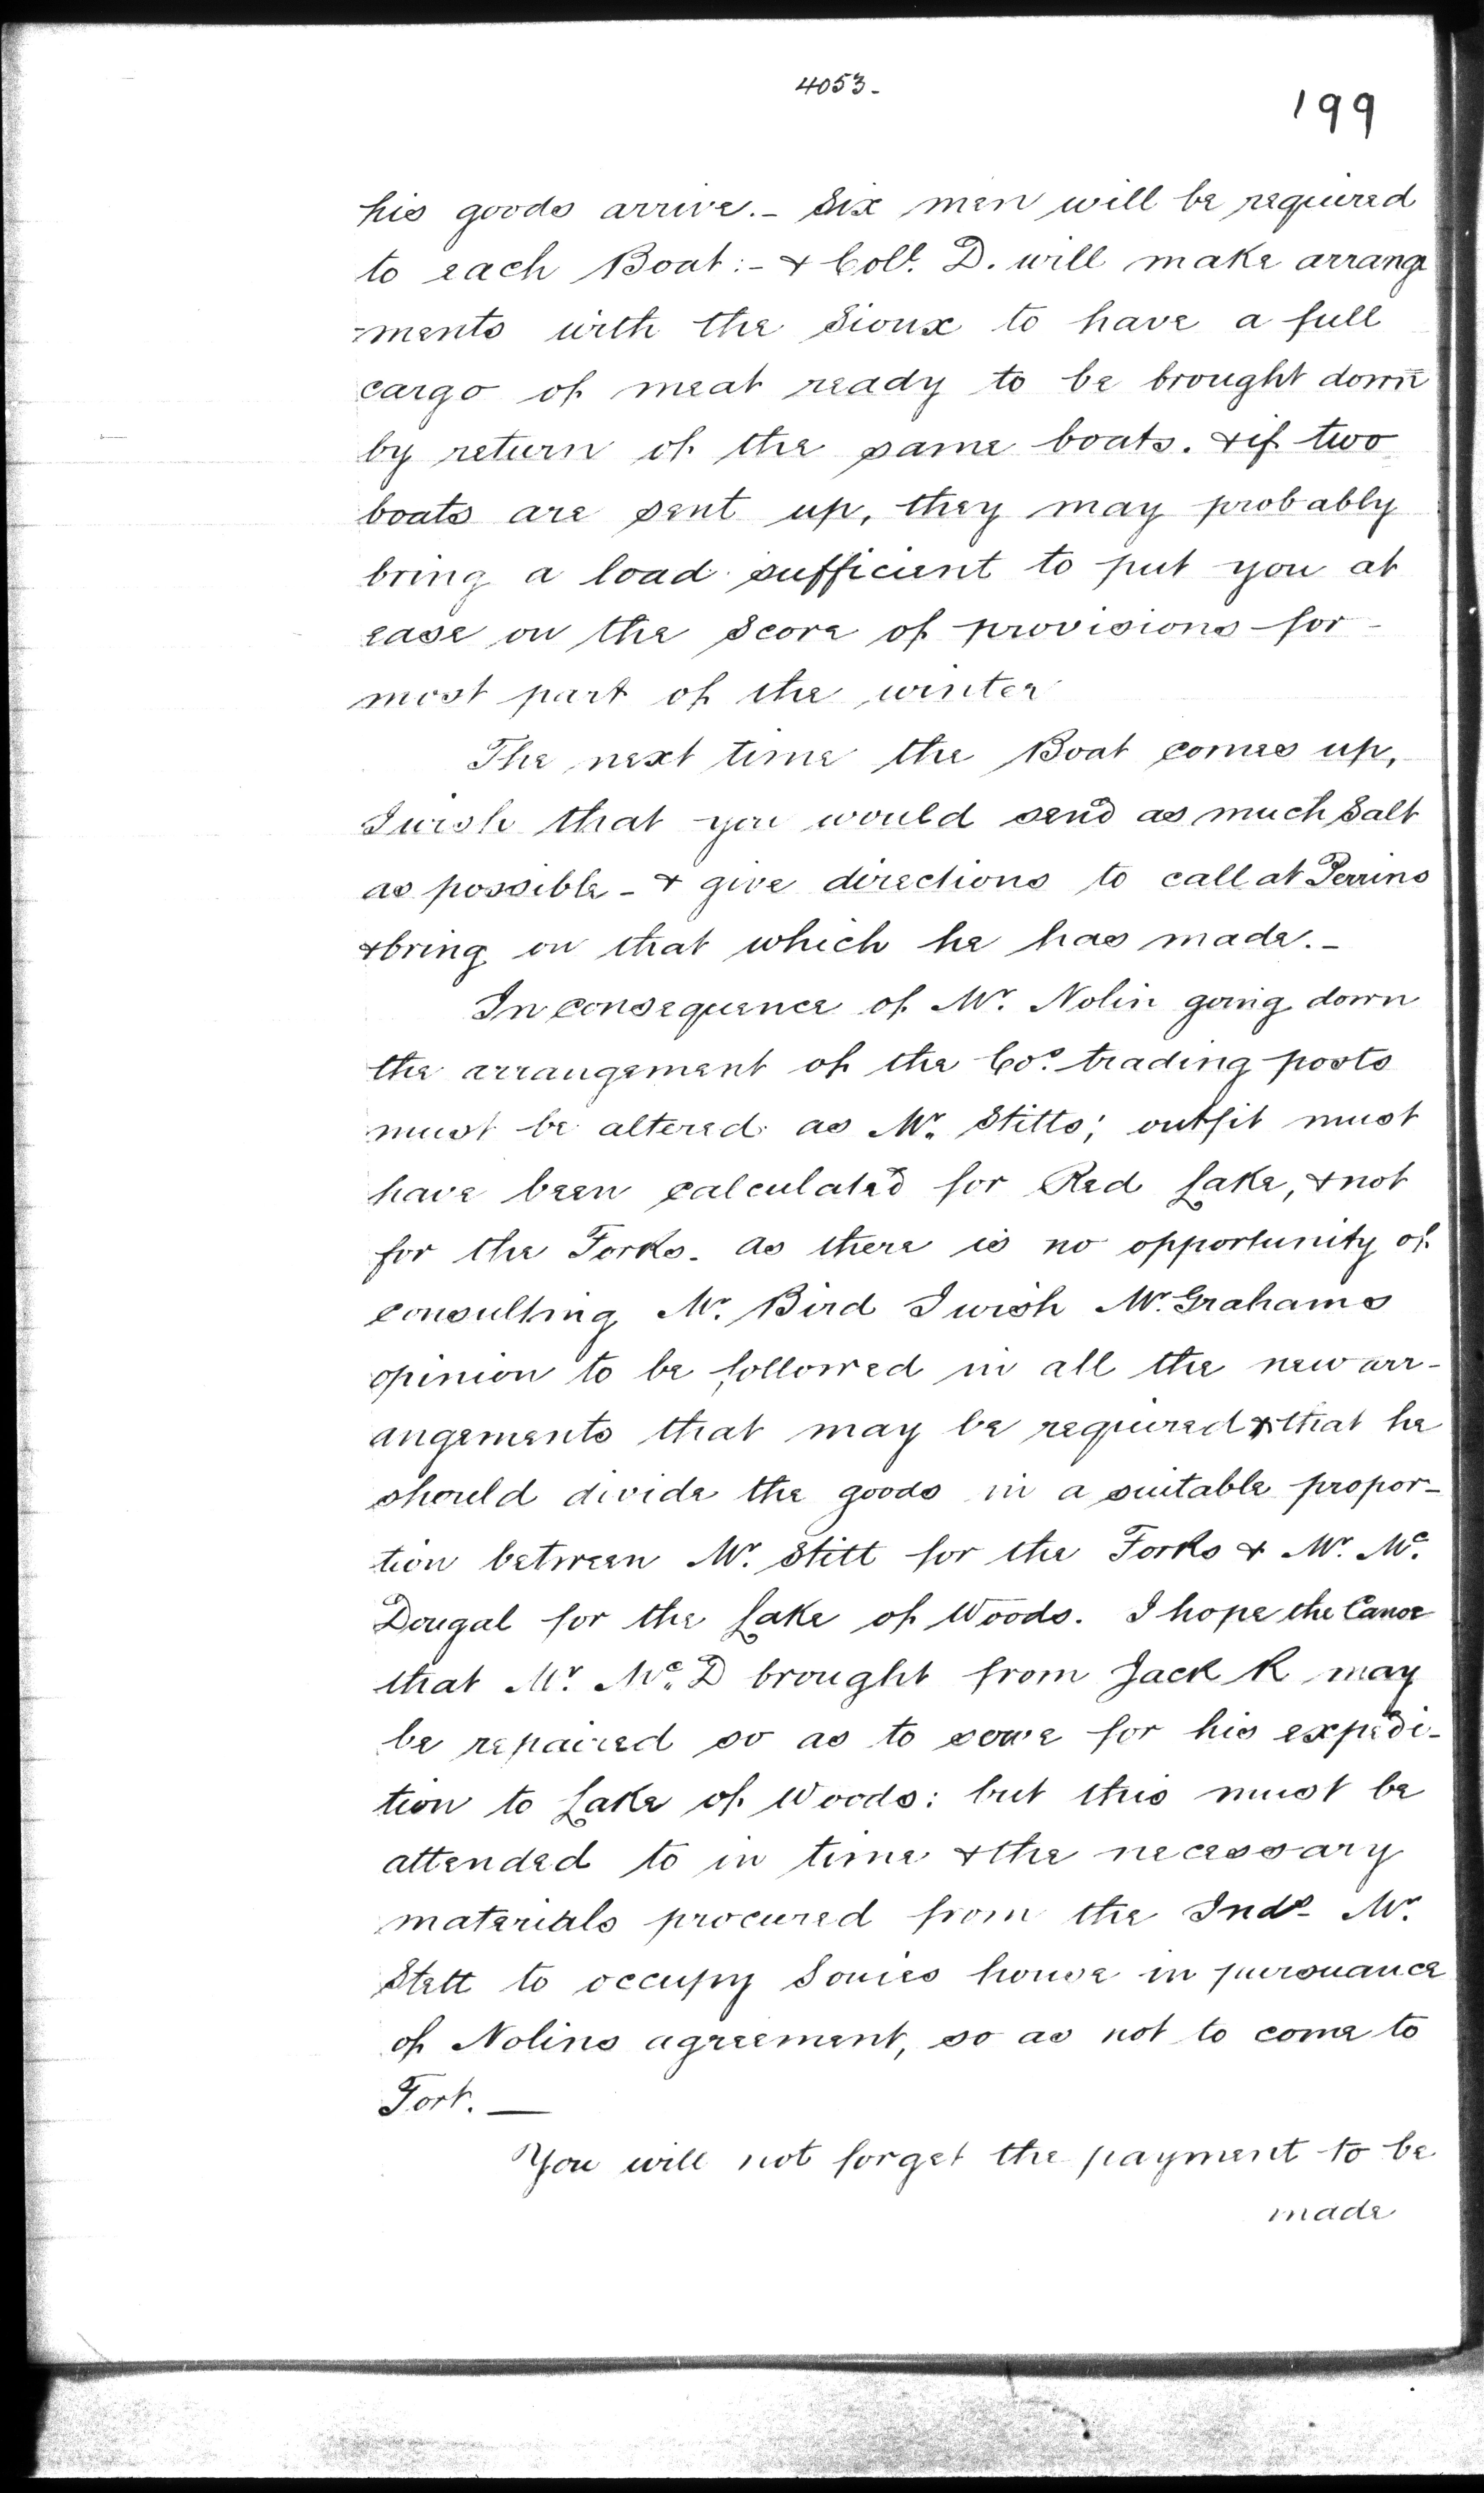 4053-
199
his goods arrive.- Six men will be required
to each Boat:- & Coll. D. will make arrange
-ments with the Sioux to have a full
cargo of meat ready to be brought down
by return of the same boats. & if two
boats are sent up, they may probably
bring a load sufficient to put you at
ease on the Score of provisions for-
most part of the winter
The next time the Boat comes up,
I wish that you would send as much Salt
as possible - & give directions to call at Perrins
& bring on that which he has made.-
In consequence of Mr. Nolin going down
the arrangement of the Cos. trading posts
must be altered as Mr. Stitts; outfit must
have been calculated for Red Lake, & not
for the Forks. As there is no opportunity of
consulting Mr. Bird I wish Mr. Grahams
opinion to be followed in all the new arr-
angements that may be required & that he
should divide the goods in a suitable propor-
tion between Mr. Stitt for the Forks & Mr. Mc.
Dougal for the Lake of Woods. I hope the Canoe
that Mr. Mc. D brought from Jack R may
be repaired so as to serve for his expedi-
tion to Lake of Woods: but this must be
attended to in time & the necessary
materials procured from the Inds- Mr.
Stett to occupy Souies house in pursuance
of Nolins agreement, so as not to come to
Fort. —
You will not forget the payment to be
made